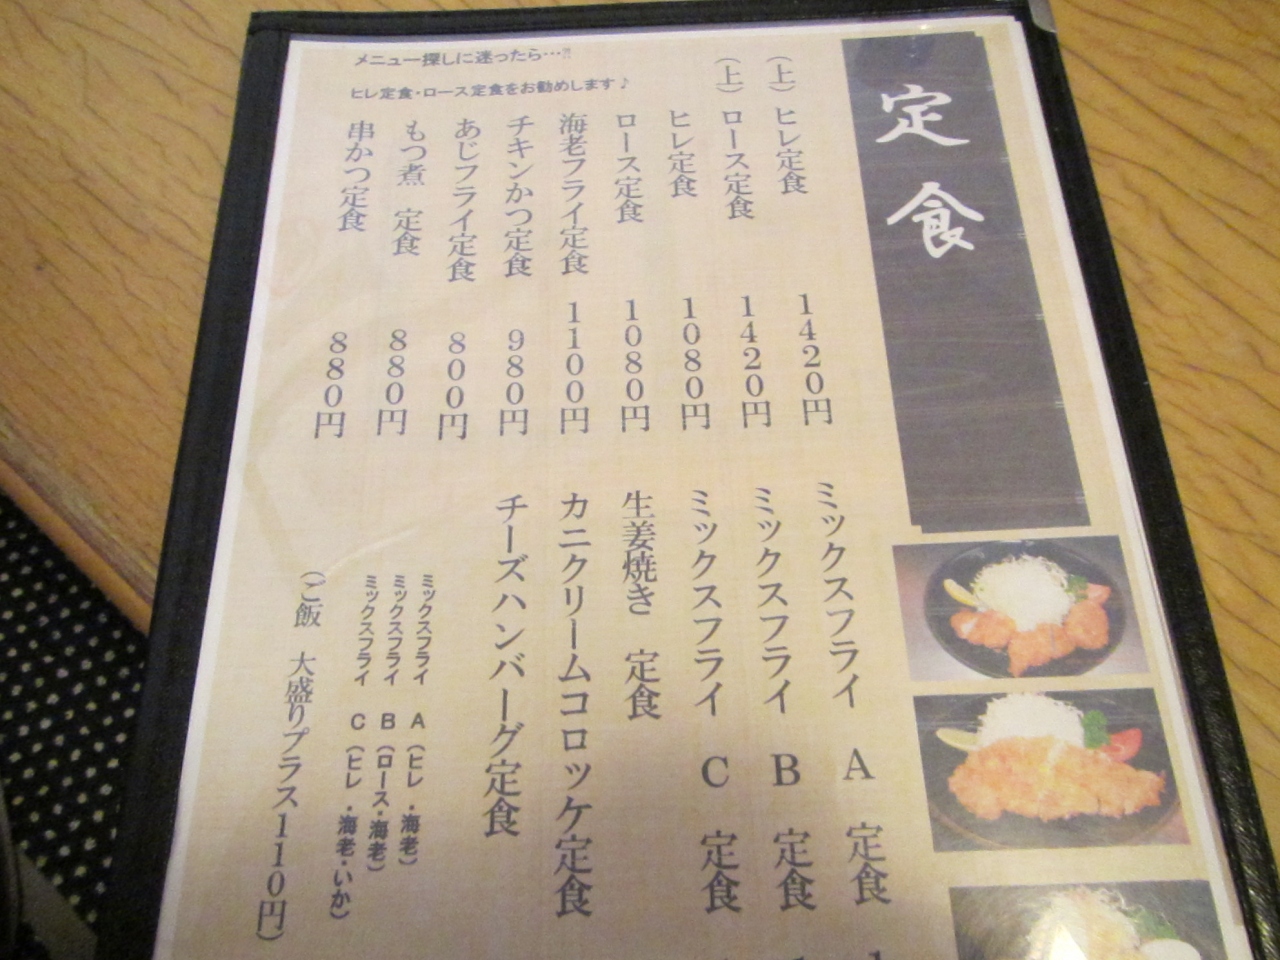 定食
(上)ヒレ定食 1420円
(上)ロース定食 1420円
ヒレ定食 1080円
ロース定食 1080円
海老フライ定食 1100円
チキンかつ定食 980円
あじフライ定食 800円
もつ煮 定食 880円
串かつ定食 880円
メニュー探しに迷ったら…⁈
ヒレ定食・ロース定食をお勧めします♪
ミックスフライ A 定食
ミックスフライ B 定食
ミックスフライ C 定食
生姜焼き 定食
カニクリームコロッケ定食
チーズハンバーグ定食
ミックスフライ A(ヒレ・海老)
ミックスフライ B(ロース・海老)
ミックスフライ C(ヒレ・海老・いか)
(ご飯 大盛りプラス110円)